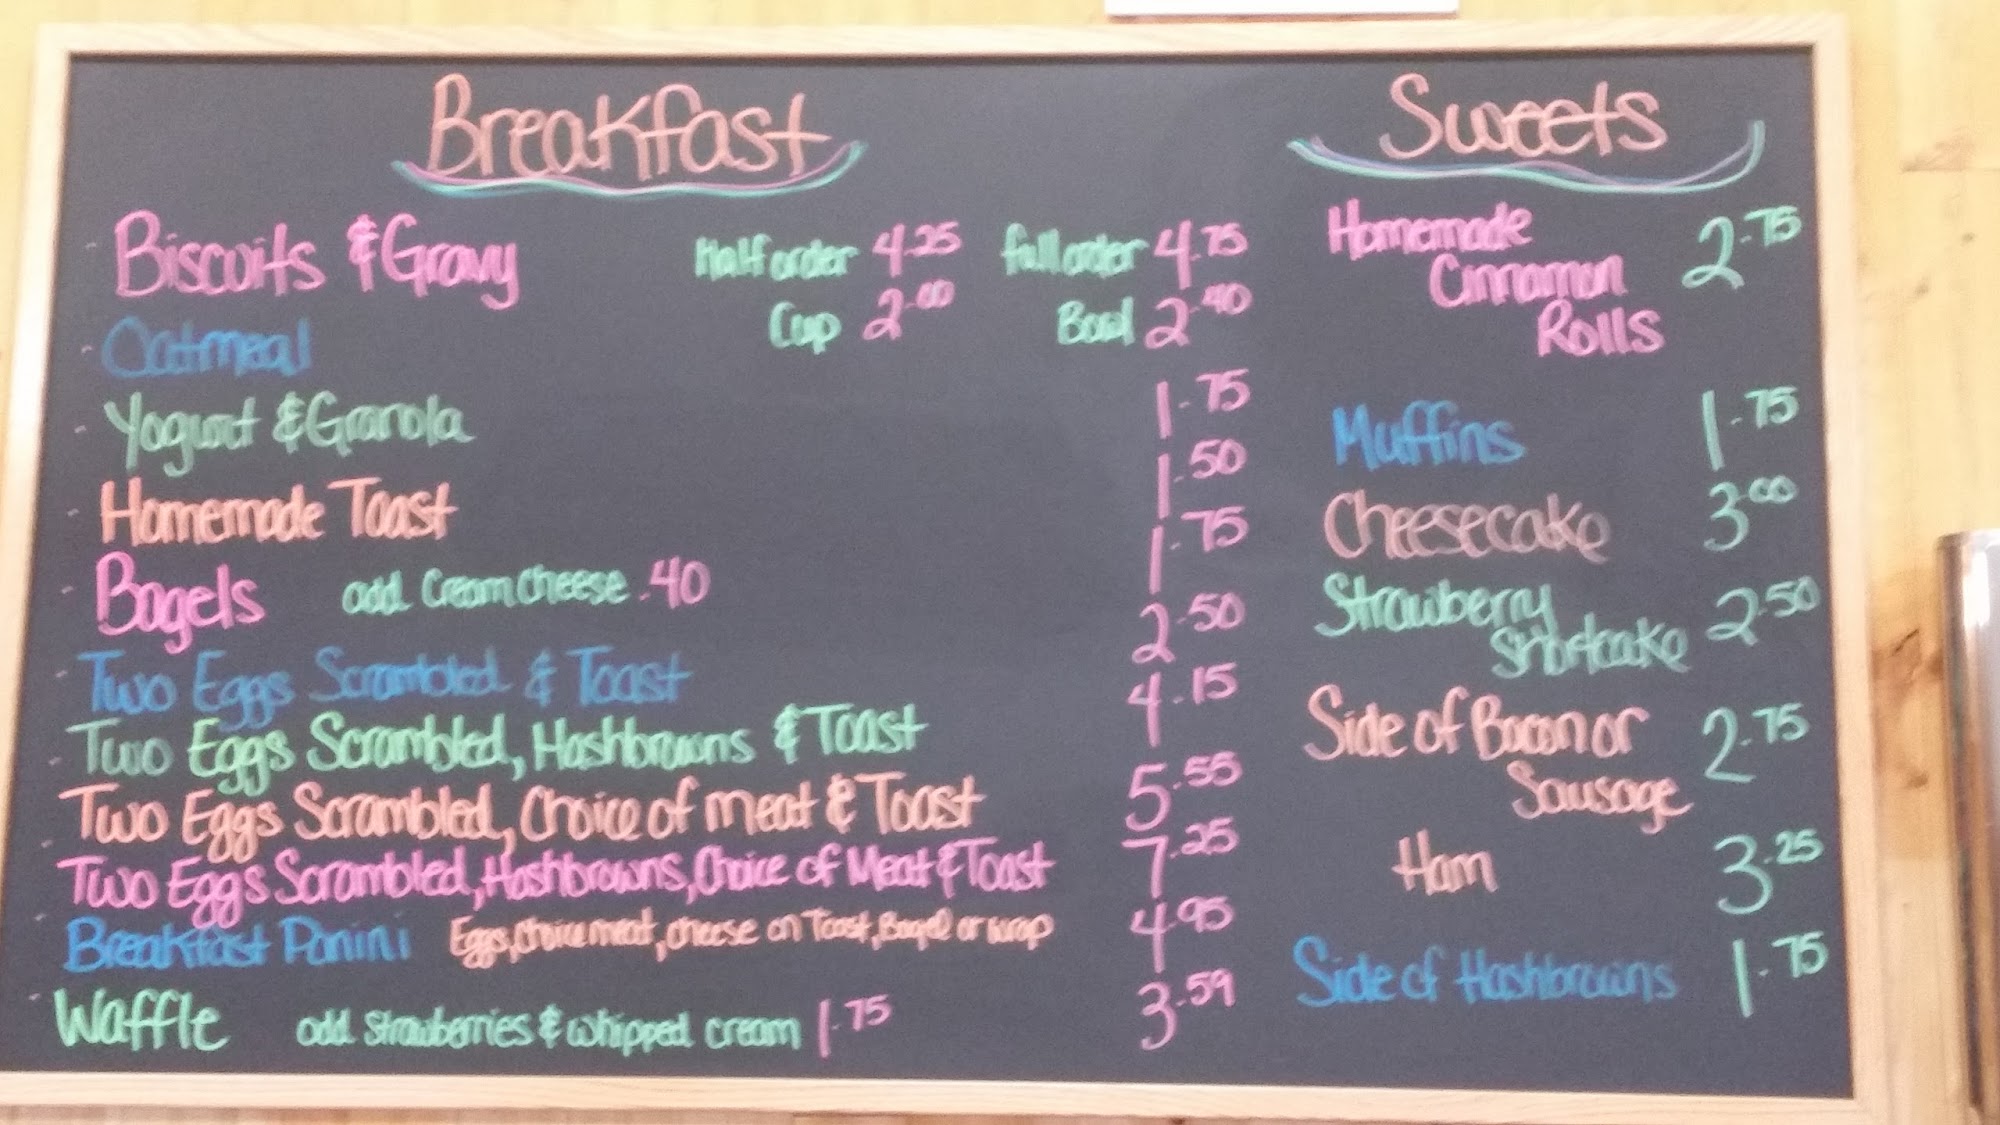 Breakfast
Biscuits & Gravy Half order 4.25 full order 4.75
Oatmeal Cup 2.00 Bowl 2.40
Yogurt & Granola 1.75
Homemade Toast 1.50
Bagels add Cream Cheese .40 1.75
Two Eggs Scrambled & Toast 2.50
Two Eggs Scrambled, Hashbrowns & Toast 4.15
Two Eggs Scrambled, Choice of meat & Toast 5.55
Two Eggs Scrambled, Hashbrowns, Choice of Meat & Toast 7.25
Breakfast Panini Eggs, Choice meat, cheese on Toast, Bagel or wrap 4.95
Waffle add strawberries & whipped cream 1.75 3.59
Sweets
Homemade 2.75
Cinnamon
Rolls
Muffins 1.75
Cheesecake 3.00
Strawberry 2.50
Shortcake
Side of Bacon or 2.75
Sausage
Ham 3.25
Side of Hashbrowns 1.75